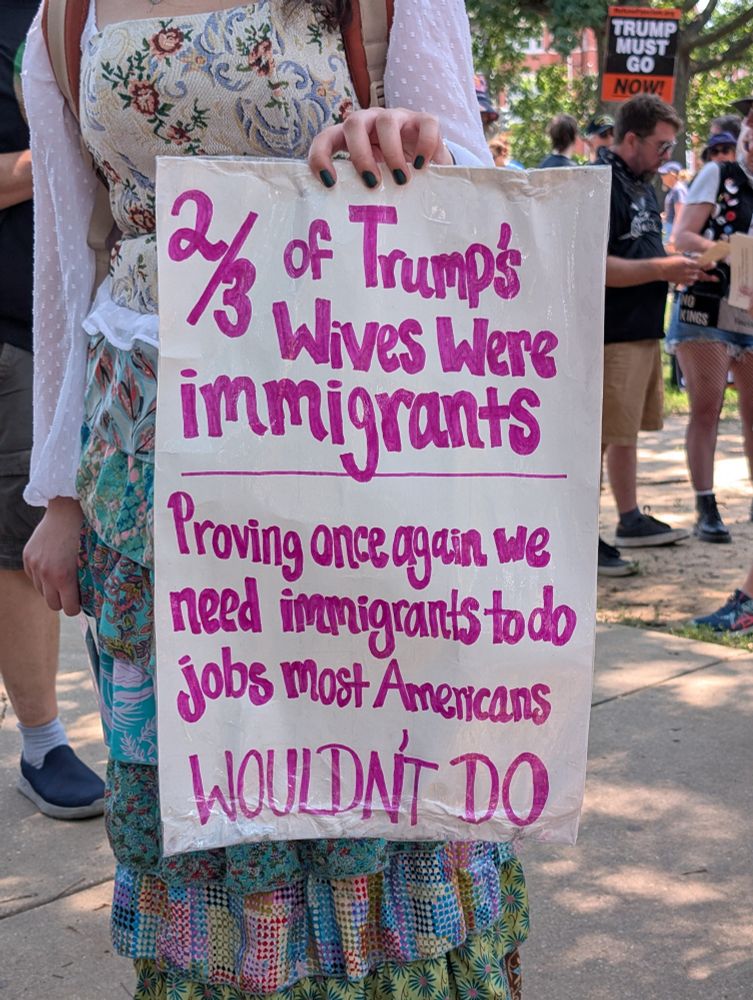 2/3 of Trump's
Wives Were
immigrants
Proving once again we
need immigrants to do
jobs most Americans
WOULDN'T DO
TRUMP
MUST
GO
NOW!
NO
KINGS